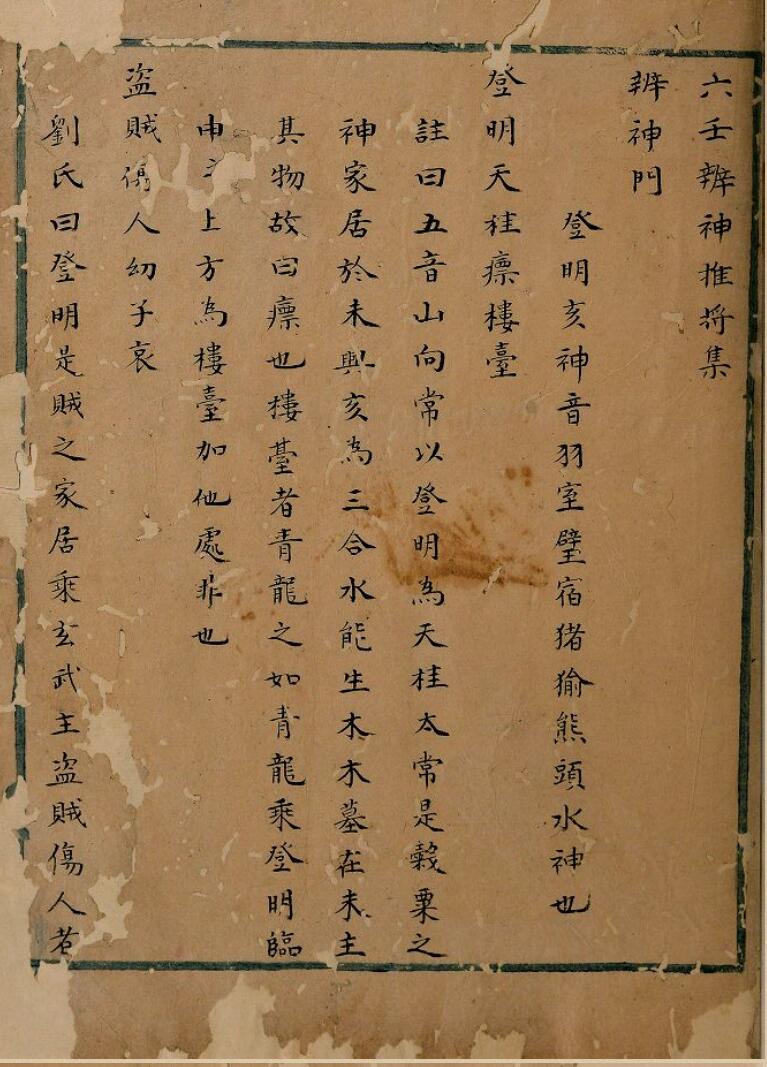 六壬辨神推将集
辨神門
登明亥神音羽室壁宿猪㺄熊頭水神也
登明天柱廪樓臺
註曰五音山向常以登明為天柱太常是穀粟之
神家居於未與亥為三合水能生木木墓在未主
其物故曰廪也樓臺者青龍之如青龍乘登明臨
申之上方為樓臺加他處非也
盗賊傷人幼子哀
劉氏曰登明是賊之家居乘玄武主盗賊傷人若